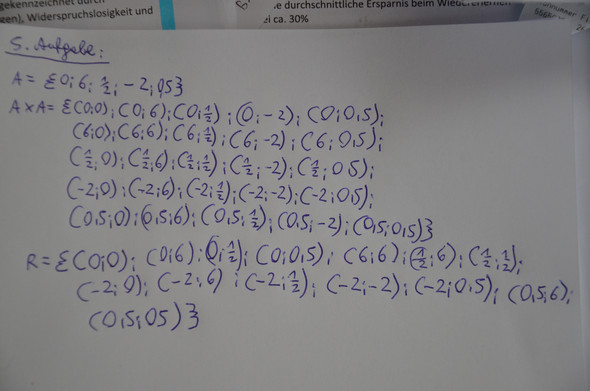 gekennzeichnet durch
gen), Widerspruchslosigkeit und
ie durchschnittliche Ersparnis beim
zi ca. 30%
5. Aufgabe:
A = {0; 6; 1/2; -2; 0,5}
A x A = {(0;0); (0; 6); (0; 1/2); (0; -2); (0; 0,5);
(6;0); (6;6); (6; 1/2); (6; -2); (6; 0,5);
(1/2; 0); (1/2; 6); (1/2; 1/2); (1/2; -2); (1/2; 0,5);
(-2;0); (-2;6); (-2; 1/2); (-2; -2); (-2; 0,5);
(0,5; 0); (0,5; 6); (0,5; 1/2); (0,5; -2); (0,5; 0,5)}
R = {(0;0); (0;6); (0; 1/2); (0; 0,5); (6;6); (1/2; 6); (1/2; 1/2);
(-2; 0); (-2; 6); (-2; 1/2); (-2; -2); (-2; 0,5); (0,5; 6);
(0,5; 05)}